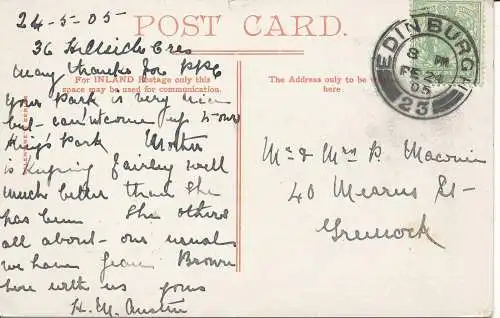 24-5-05
POST CARD.
36 Hillside Cres
For INLAND Postage only this
space may be used for communication.
The Address only to be
here
Many thanks for PPC
Your Park is very nice
but cant come up to our
King's Park Mother
is keeping fairly well
much better than she
has been The others
all about our usual
we have Jean Brown
here with us yours
H. M. Austin
EDINBURGH
8 PM
FE 24
05
23
Mr & Mrs P.
40 Mearns St
Greenock